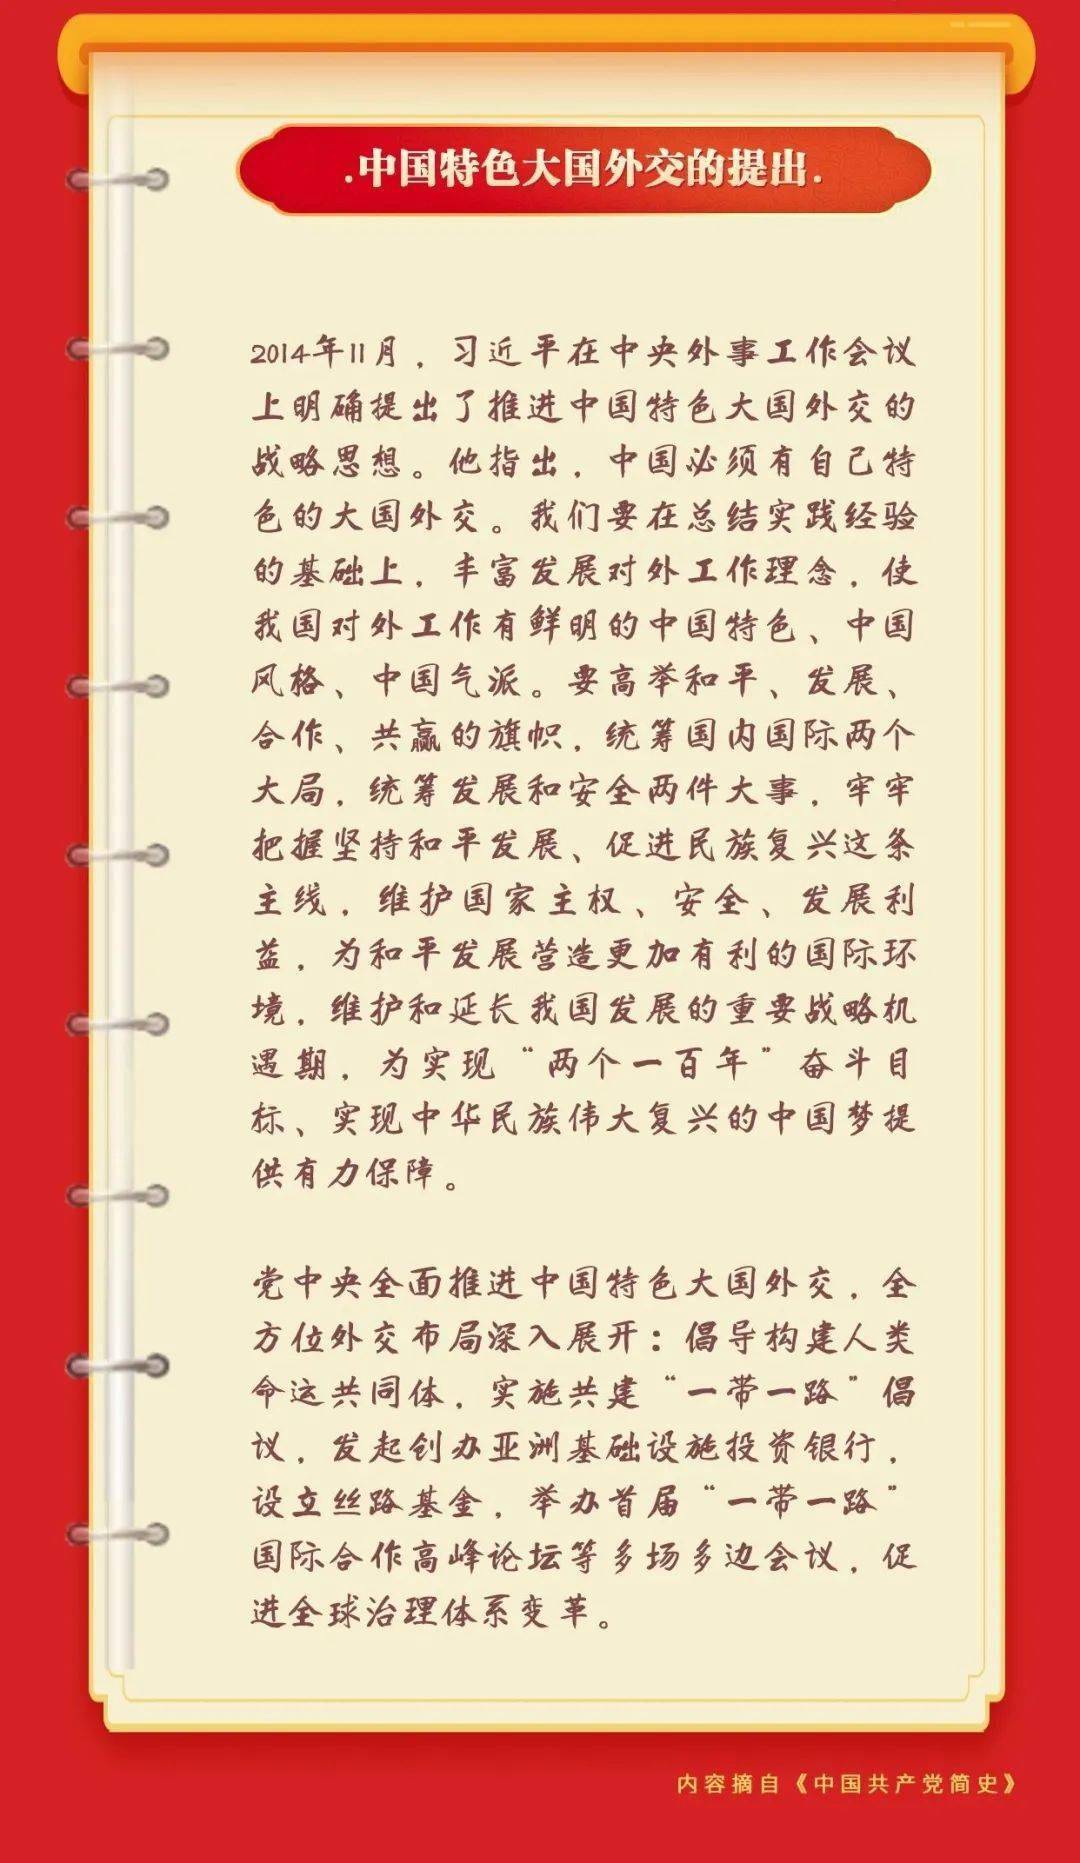 .中国特色大国外交的提出.
2014年11月，习近平在中央外事工作会议
上明确提出了推进中国特色大国外交的
战略思想。他指出，中国必须有自己特
色的大国外交。我们要在总结实践经验
的基础上，丰富发展对外工作理念，使
我国对外工作有鲜明的中国特色、中国
风格、中国气派。要高举和平、发展、
合作、共赢的旗帜，统筹国内国际两个
大局，统筹发展和安全两件大事，牢牢
把握坚持和平发展、促进民族复兴这条
主线，维护国家主权、安全、发展利
益，为和平发展营造更加有利的国际环
境，维护和延长我国发展的重要战略机
遇期，为实现“两个一百年”奋斗目
标、实现中华民族伟大复兴的中国梦提
供有力保障。
党中央全面推进中国特色大国外交，全
方位外交布局深入展开：倡导构建人类
命运共同体，实施共建“一带一路”倡
议，发起创办亚洲基础设施投资银行，
设立丝路基金，举办首届“一带一路”
国际合作高峰论坛等多场多边会议，促
进全球治理体系变革。
内容摘自《中国共产党简史》